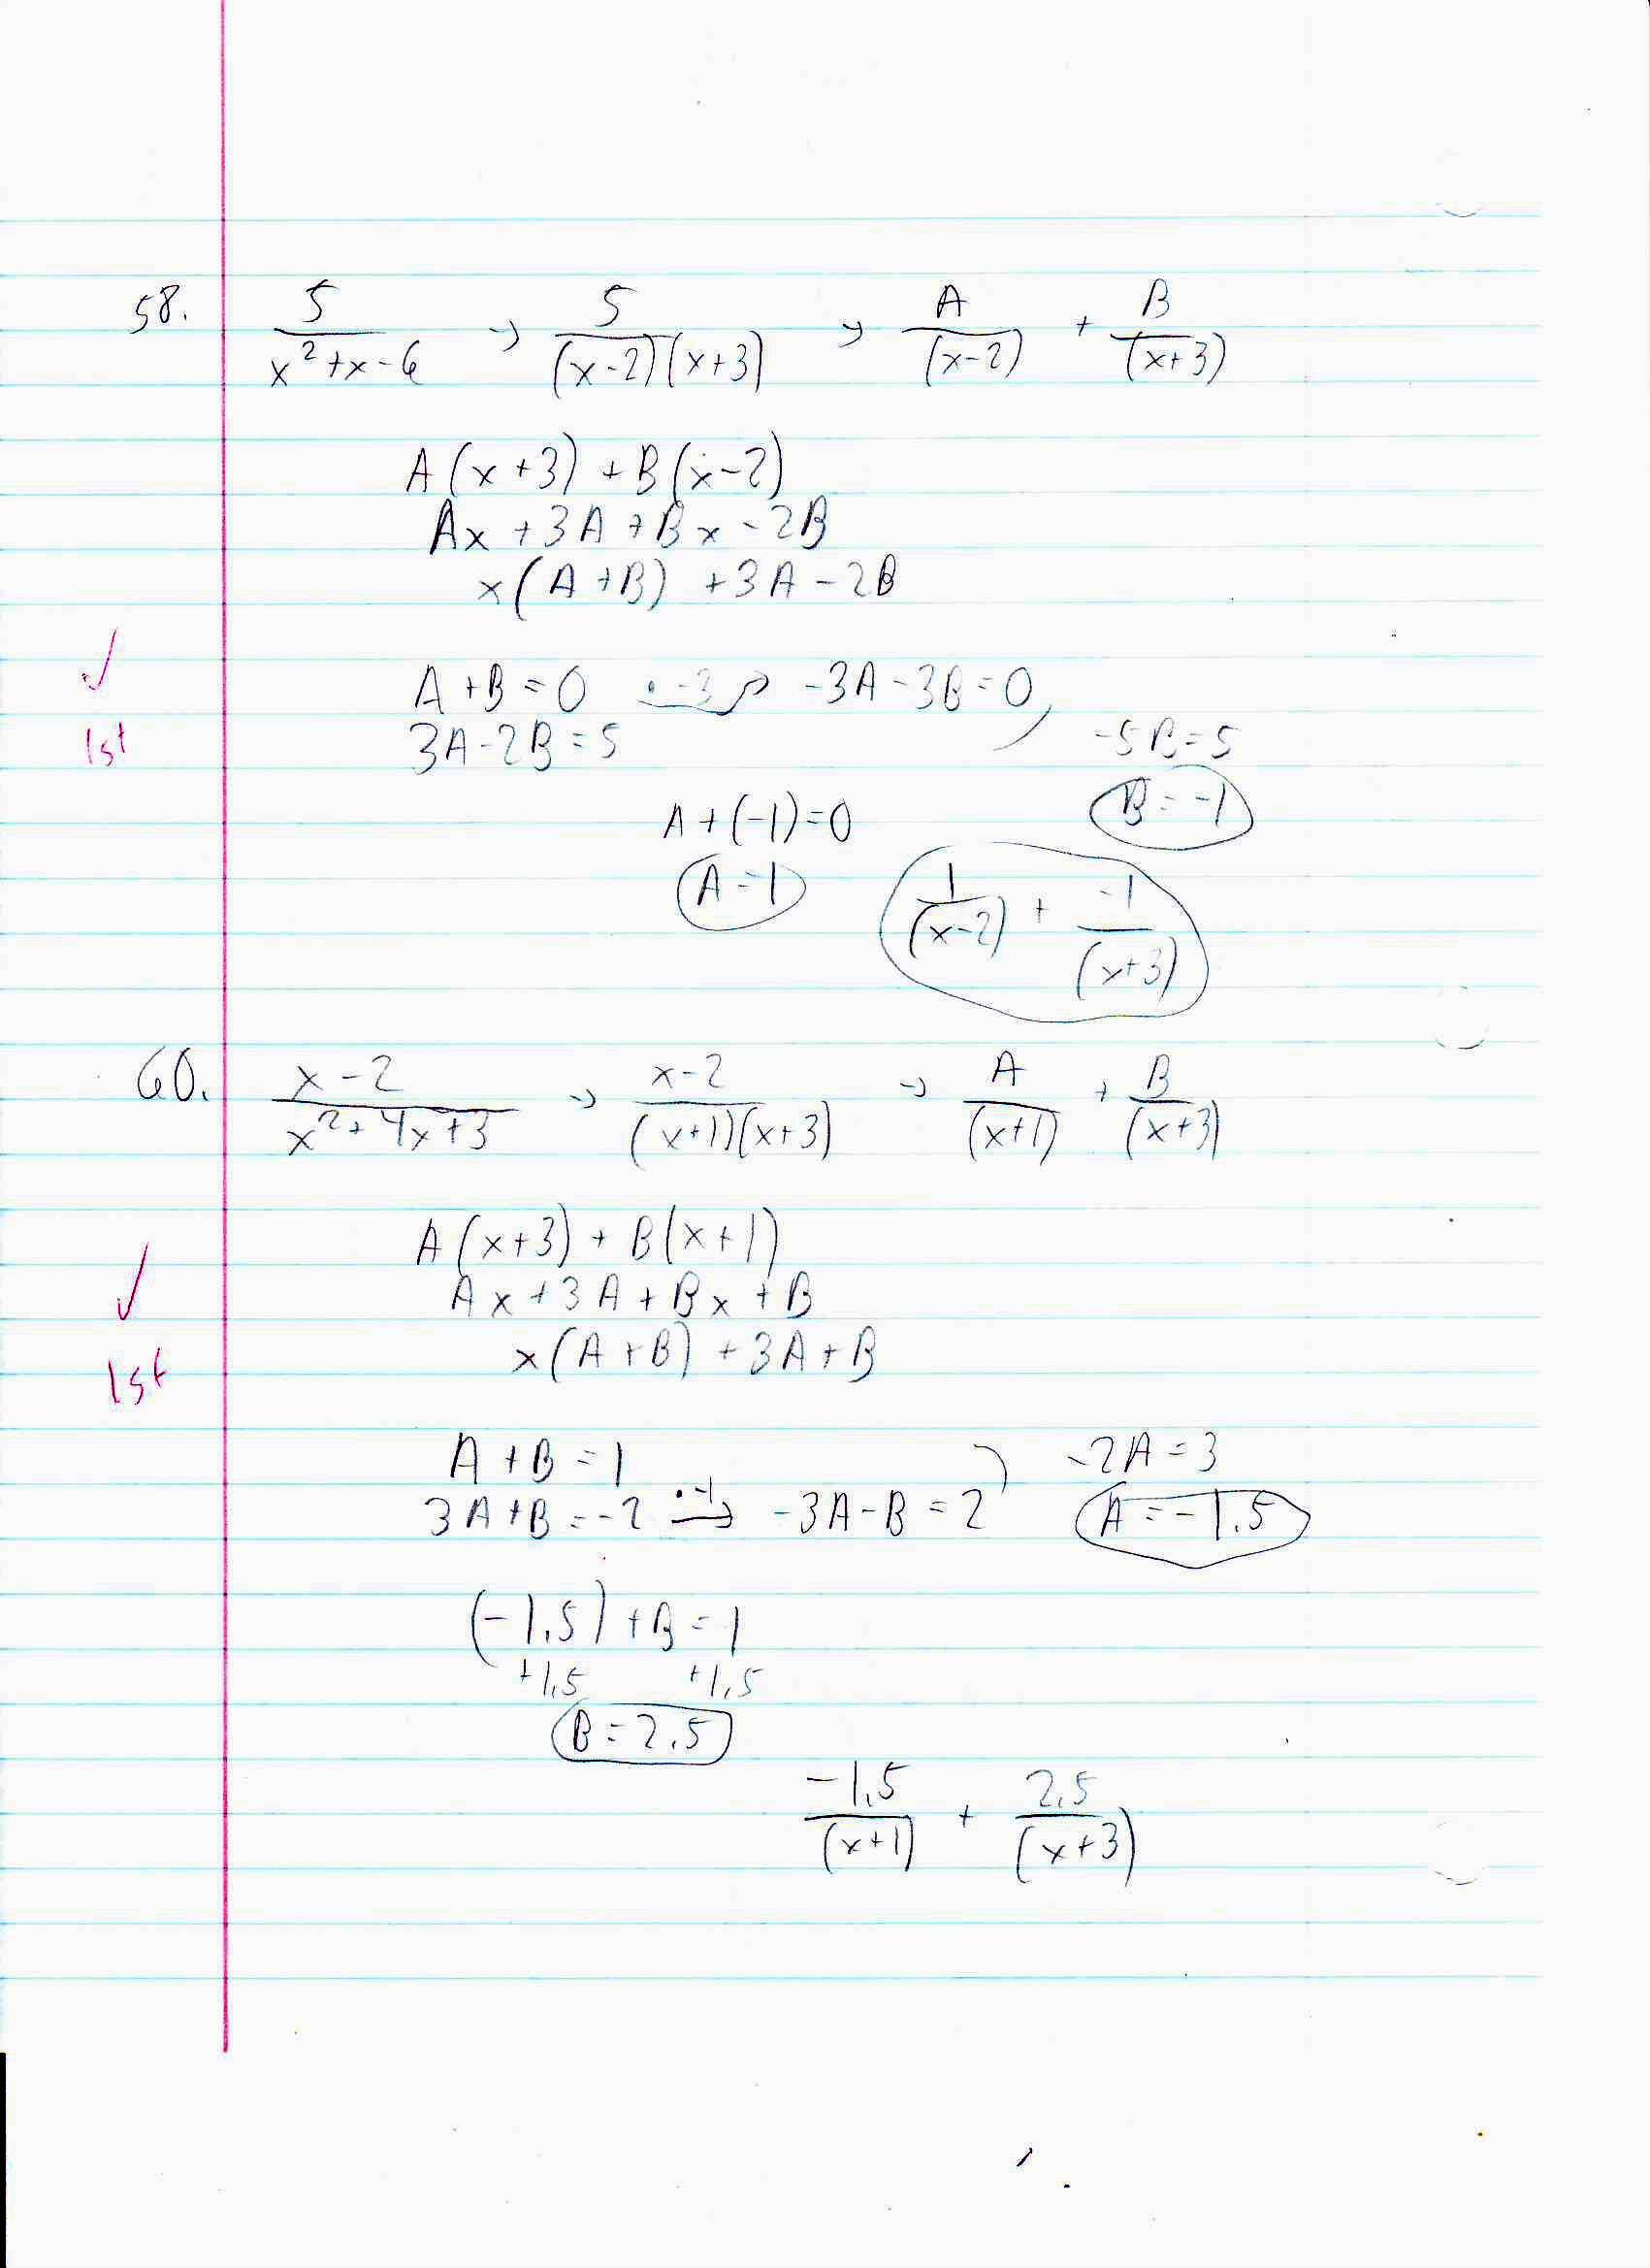 58. 5/(x²+x-6) → 5/((x-2)(x+3)) → A/(x-2) + B/(x+3)
A(x+3) + B(x-2)
Ax + 3A + Bx - 2B
x(A+B) + 3A - 2B
✓
A+B=0 · -3 → -3A-3B=0
1st 3A-2B=5 -5B=5
A+(-1)=0 B=-1
A=1 1/(x-2) + -1/(x+3)
60. x-2/(x²+4x+3) → x-2/((x+1)(x+3)) → A/(x+1) + B/(x+3)
A(x+3) + B(x+1)
✓ Ax+3A+Bx+B
1st x(A+B)+3A+B
A+B=1 -2A=3
3A+B=-2 · -1 → -3A-B=2 A=-1.5
(-1.5)+B=1
+1.5 +1.5
B=2.5
-1.5/(x+1) + 2.5/(x+3)